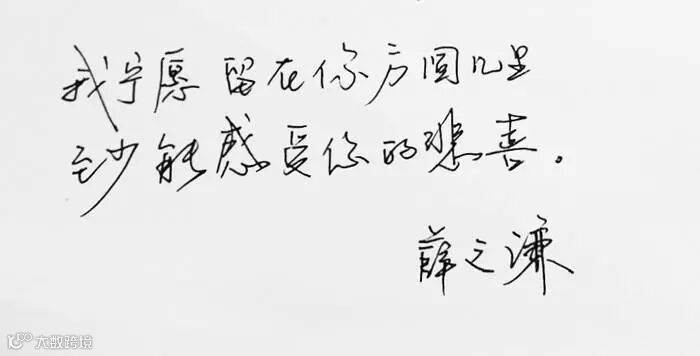 我宁愿留在你方圆几里
至少能感受你的悲喜。
薛之谦
大数跨境